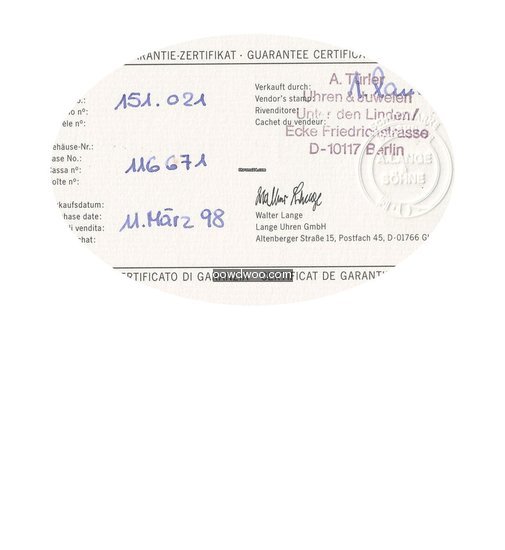 RANTIE-ZERTIFIKAT · GUARANTEE CERTIFIC
151.021
o nº:
èle nº:
Verkauft durch:
Vendor's stamp:
Rivenditore:
Cachet du vendeur:
A. Türler
Uhren & Juwelen
Unter den Linden/
Ecke Friedrichstrasse
D-10117 Berlin
A. LANGE
SÖHNE
ehäuse-Nr.:
ase No.:
assa nº:
oîte nº:
116671
rkaufsdatum:
hase date:
di vendita:
chat:
11. März 98
Walter Lange
Walter Lange
Lange Uhren GmbH
Altenberger Straße 15, Postfach 45, D-01766 G
ERTIFICATO DI GA
FICAT DE GARANTI
oowdwoo.com